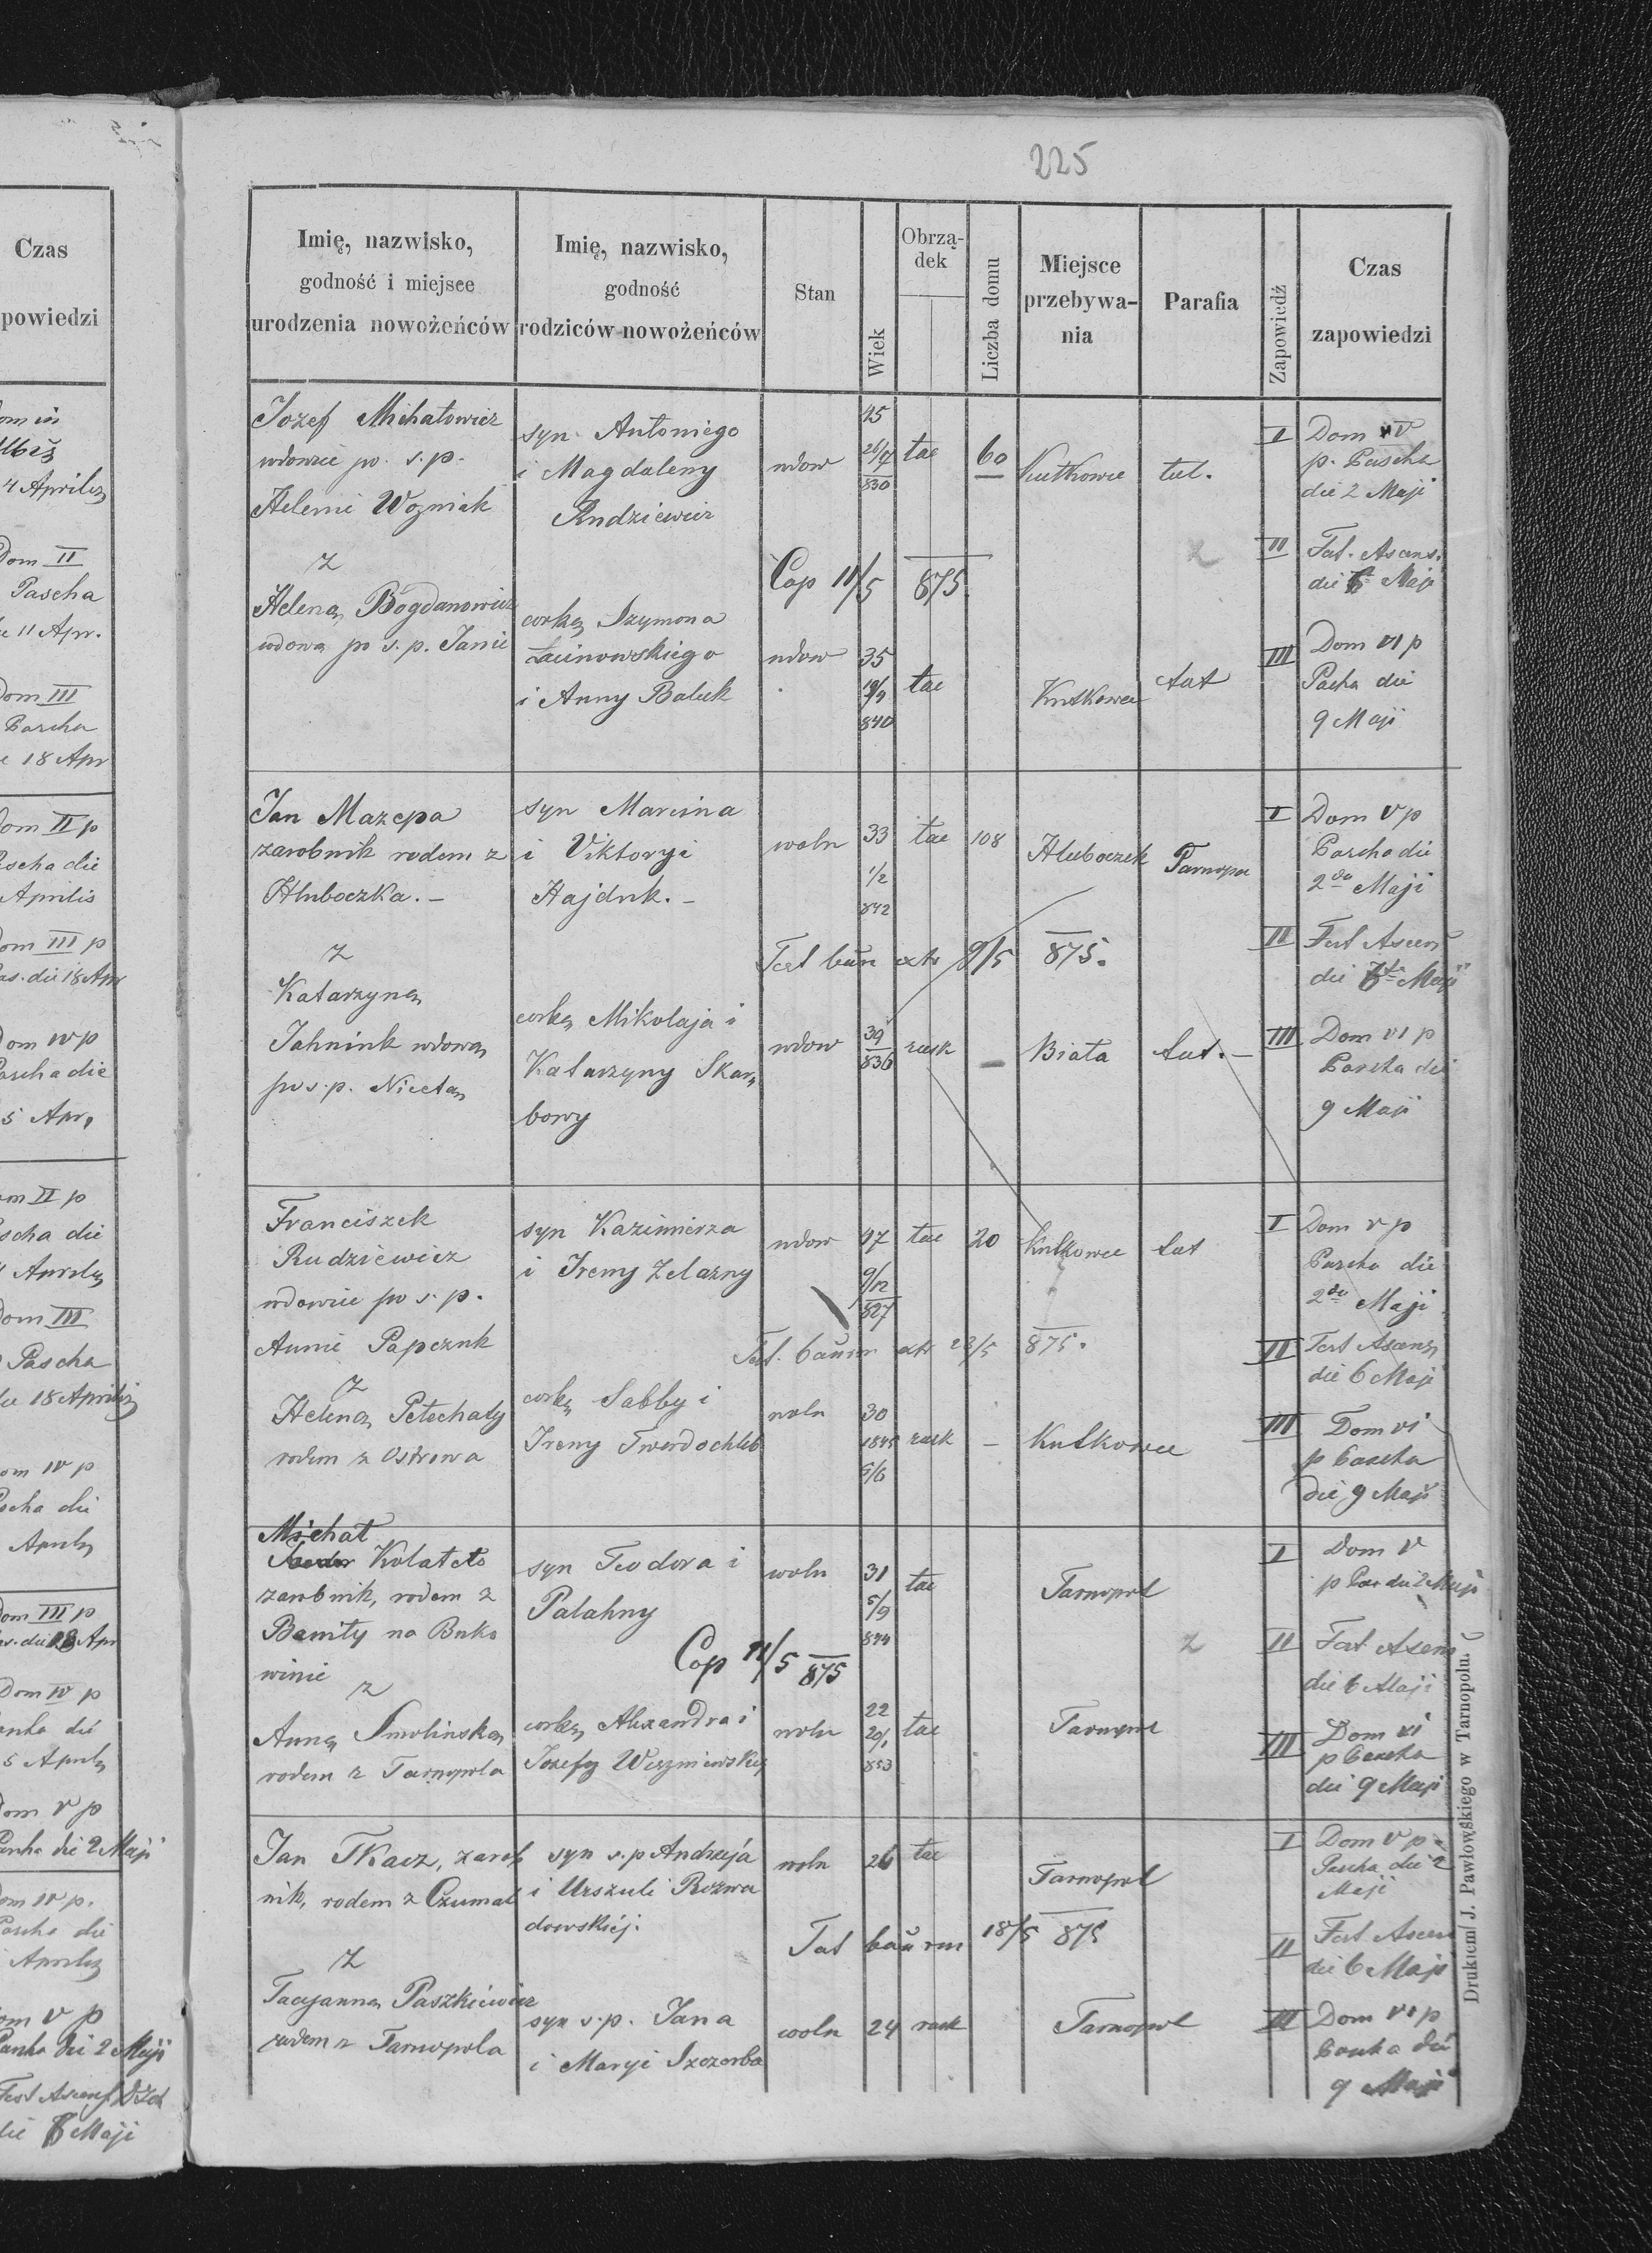 225
Czas
powiedzi
4 Aprilis
Dom II
Pascha
11 Apr.
Dom III
Pascha
18 Apr
Dom II p
Pascha die
Aprilis
Dom III p
die 18 Apr
Dom IV p
Pascha die
5 Apr.
II p
Pascha die
Aprilis
Dom III
Pascha
die 18 Aprilis
Dom IV p
Pascha die
Aprilis
Dom III p
die 18 Apr
Dom IV p
Pascha die
5 Aprilis
Dom V p
Pascha die 2 Maji
Dom IV p.
Pascha die
Aprilis
Dom V p
Pascha die 2 Maji
Fest Ascens
die 6 Maji
Imię, nazwisko,
godność i miejsce
urodzenia nowożeńców
Imię, nazwisko,
godność
rodziców nowożeńców
Stan
Wiek
Obrzą-
dek
Liczba domu
Miejsce
przebywa-
nia
Parafia
Zapowiedź
Czas
zapowiedzi
Jozef Michałowicz
wdowiec po. s.p.
Helenie Wozniak
z
Heleną Bogdanowicz
wdową po s.p. Janie
syn Antoniego
i Magdaleny
Rudziewicz
corką Szymona
i Anny Baluk
wdow
45
830
łac
60
Kutkowce
tut.
Cop 11/5 875
wdow
35
19/9
840
łac
Kutkowce
tut
I Dom V
p. Pascha
die 2 Maji
II Fest. Ascens.
die 6 Maji
III Dom VI p
Pascha die
9 Maji
Jan Mazepa
zarobnik rodem z
Hłuboczka. –
z
Katarzyną
Jahniuk wdową
po s.p. Nicetas
syn Marcina
i Viktoryi
Hajduk. –
corką Mikołaja i
Katarzyny Skar,
bowy
woln
33
1/2
842
łac
108
Hłuboczek
Tarnopol
Test bań extr 9/5 875.
wdow
39
836
rusk
–
Biała
tut. –
I Dom V p
Pascha die
2da Maji
II Fest Ascens
die 6ta Maji
III Dom VI p
Pascha die
9 Maji
Franciszek
Rudziewicz
wdowiec po s.p.
Annie Papczuk
z
Heleną Petechaty
rodem z Ostrowa
syn Kazimierza
i Ireny Zelazny
corką Sabby i
Ireny Twerdochleb
wdow
47
9/12
827
łac
20
Kutkowce
tut
extr 23/5 875.
woln
30
1845
5/6
rusk
–
Kutkowce
I Dom V p
Pascha die
2da Maji
II Fest Ascens
die 6 Maji
III Dom VI
p Pascha
die 9 Maji
Michał
Kolatcto
zarobnik, rodem z
Baniły na Buko
winie
z
Anną Smolinską
rodem z Tarnopola
syn Teodora i
Palahny
corką Alexandra i
Jozefy Wiszniewskiej
woln
31
5/9
844
łac
Tarnopol
Cop 11/5 875
woln
22
29/1
853
łac
Tarnopol
I Dom V
p Pas die 2 Maji
II Fest Ascens
die 6 Maji
III Dom VI
p Pascha
die 9 Maji
Jan Tkacz, zarob
nik, rodem z Czumal
z
Tacyanną Paszkiewicz
rodem z Tarnopola
syn s.p Andrzeja
i Urszuli Rozwa
dowskiej.
syn s.p. Jana
i Maryi Szczerba
woln
26
łac
Tarnopol
18/5 875
woln
24
rusk
Tarnopol
I Dom V p.
Pascha die 2
Maji
II Fest Ascens
die 6 Maji
III Dom VI p
Pascha die
9 Maji
Drukiem J. Pawłowskiego w Tarnopolu.